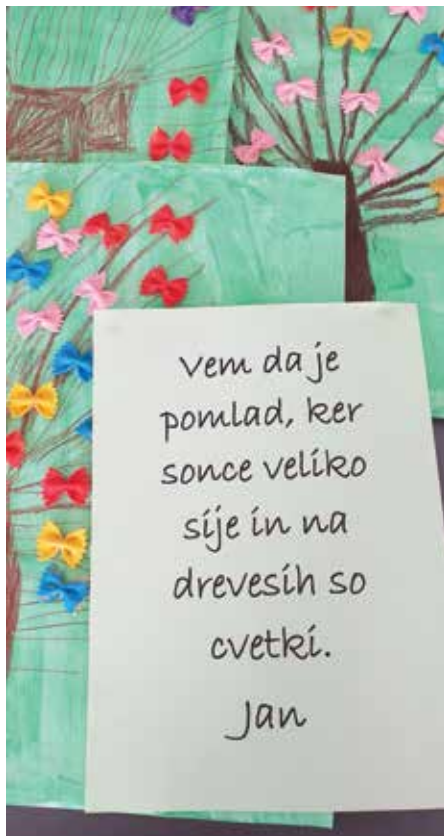 Vem da je
pomlad, ker
sonce veliko
sije in na
drevesih so
cvetki.
Jan